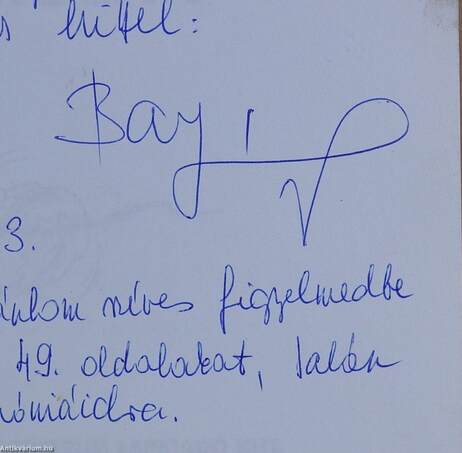 hittel:
Bay
3.
ánlom szíves figyelmedbe
49. oldalakat, talán
móniáidra.
Antikvarium.hu